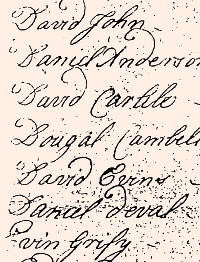 David John
Daniel Anderson
David Carlile
Dougal Cambell
David Evins
Daniel Deval
Evin Grify